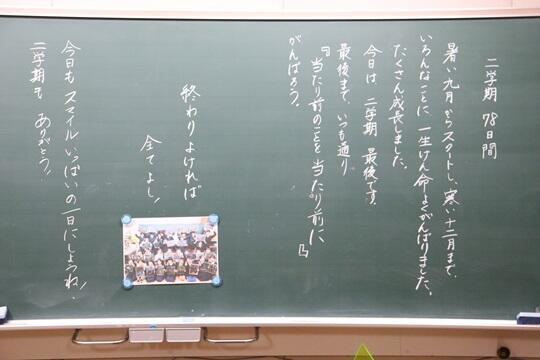 二学期 78日間
暑い九月からスタートし、寒い十二月まで、
いろんなことに 一生けん命よくがんばりました。
たくさん成長しました。
今日は 二学期 最後です。
最後まで、いつも通り
『当たり前のことを 当たり前に』
がんばろう。
終わりよければ
全てよし！
今日も スマイルいっぱいの一日にしようね！
二学期も ありがとう！